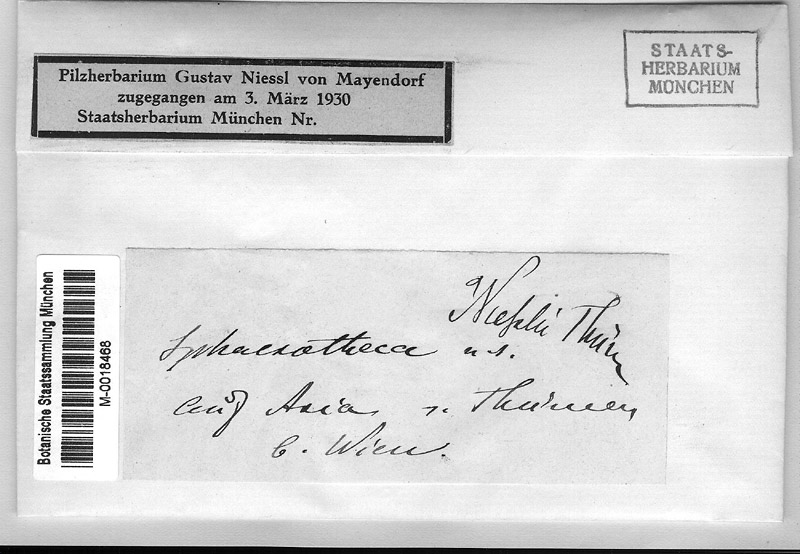 Pilzherbarium Gustav Niessl von Mayendorf
zugegangen am 3. März 1930
Staatsherbarium München Nr.
STAATS-
HERBARIUM
MÜNCHEN
Botanische Staatssammlung München
M-0018468
Niesslii Thüm
Sphaerotheca n. s.
auf Aria v. Thümen
b. Wien.